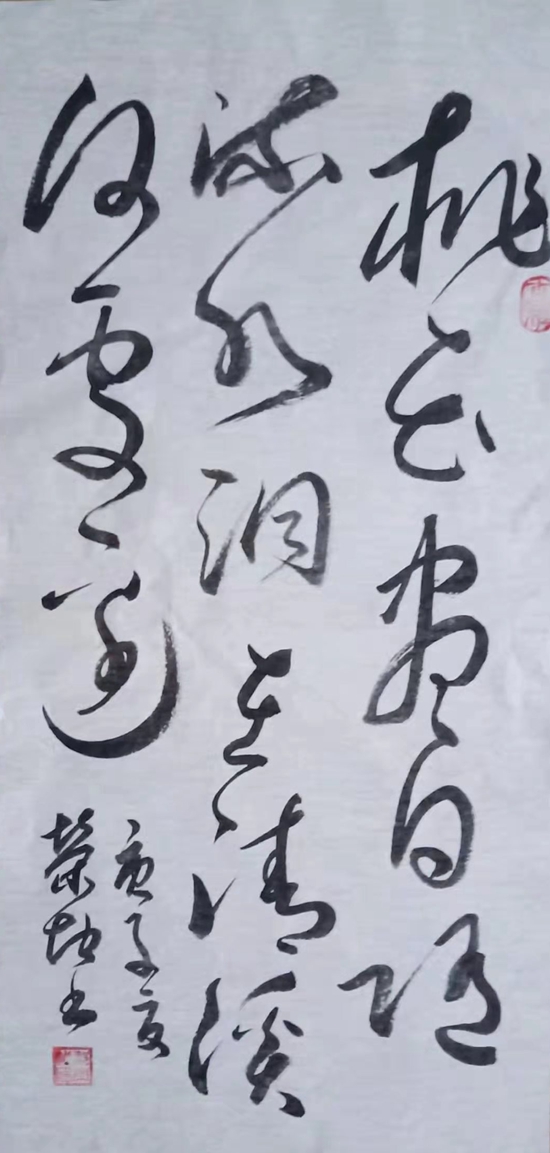 桃花尽日随
流水洞在清溪
何处边
庚子夏
荣坤书